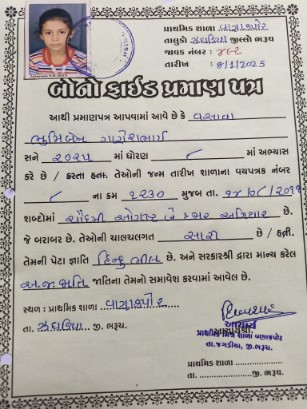 પ્રાથમિક શાળા વણાકપોર
તાલુકો ઝઘડીયા જીલ્લો ભરૂચ
જાવક નંબર :
તારીખ : 8/1/2025
બોનો ફાઈડ પ્રમાણ પત્ર
આથી પ્રમાણપત્ર આપવામાં આવે છે કે વસાવા
ભુમિબેન ગણેશભાઈ
સને ૨૦૨૫ માં ધોરણ માં અભ્યાસ
કરે છે / કરતા હતા. તેઓની જન્મ તારીખ શાળાના વયપત્રક નંબર
ના ક્રમ ૧૨૩૦ મુજબ તા.
શબ્દોમાં ચૌદમી ઓગસ્ટ બે હજાર અગિયાર છે.
જે બરાબર છે. તેઓની ચાલચલગત સારી છે / હતી.
તેમની પેટા જ્ઞાતિ હિન્દુ ભીલ છે. અને સરકારશ્રી દ્વારા માન્ય કરેલ
અ.જ.જાતિ જાતિના તેમનો સમાવેશ કરવામાં આવેલ છે.
સ્થળ : પ્રાથમિક શાળા વણાકપોર
તા. ઝઘડિયા જી. ભરૂચ.
આચાર્ય
પ્રાથમિક મિશ્ર શાળા વણાકપોર
તા. ઝગડીયા, જી. ભરૂચ.
પ્રાથમિક શાળા
તા. જી. ભરૂચ.